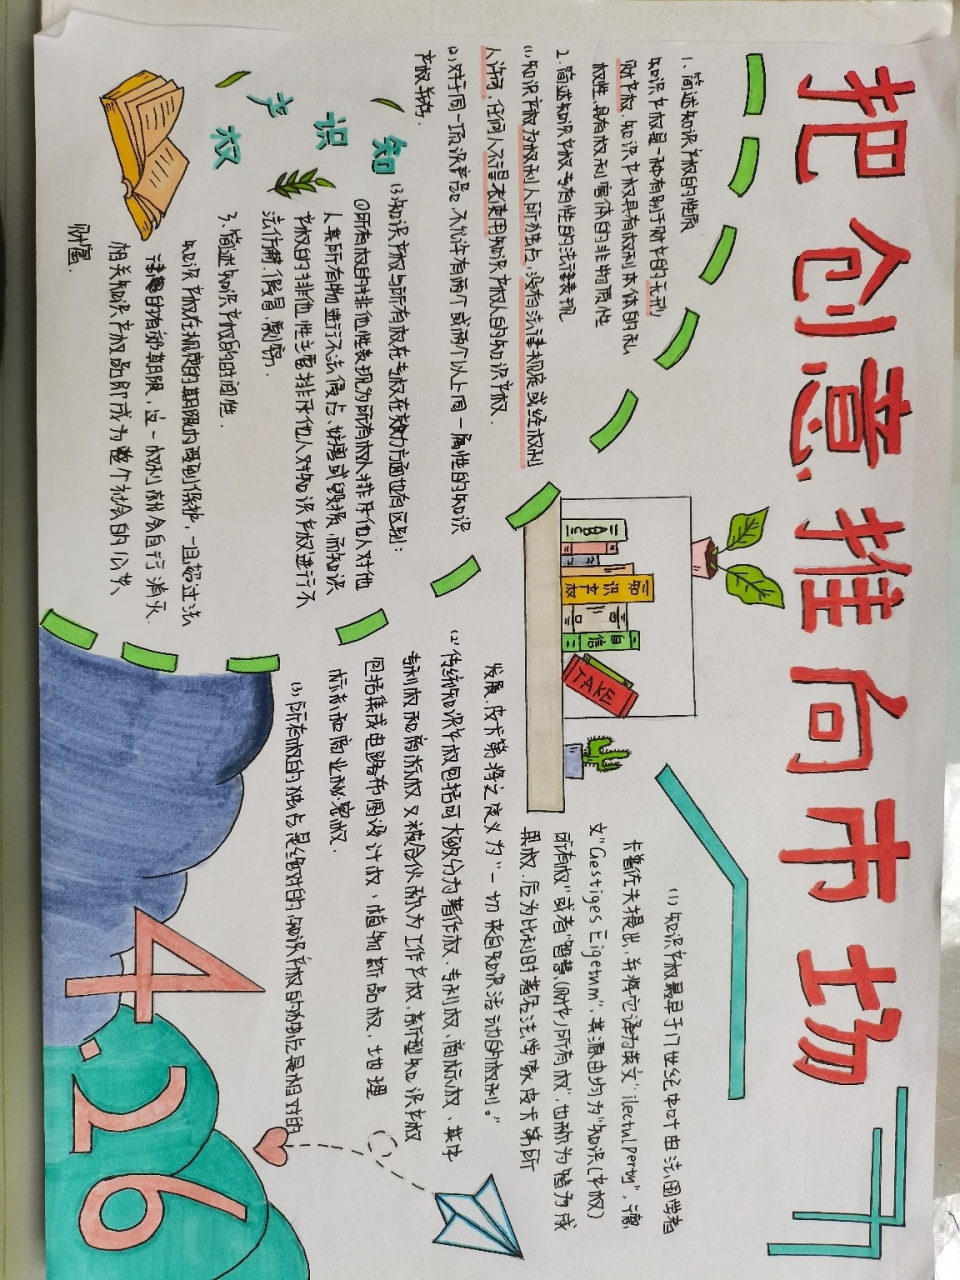 把创意推向市场
1. 简述知识产权的性质
知识产权是一种有别于财产的无形
财产权。知识产权具有权利本体的私
权性,具有权利客体的非物质性
2. 简述知识产权专有性的法律表现
(1) 知识产权为权利人所独占,没有法律规定或经权利
人许可,任何人不得来使用知识产权人的知识产权.
(2) 对于同一项识产品,不允许有两个或两个以上同一属性的知识
产权并存.
知识产权
(3) 知识产权与所有权在专权在效力方面也有区别:
①所有权的排他性表现为所有权人排斥他人对他
人某所有物进行不法侵占、妨害或毁损,而知识
产权的排他性主要排斥他人对知识产权进行不
法仿制、假冒、剽窃.
3. 简述知识产权的时间性.
知识产权在规定的期限内受到保护,一旦超过法
律的有效期限,这一权利就会自行消灭.
相关知识产权品即成为整个社会的公共
财富.
知识产权
自信
TAKE
(1) 知识产权最早于17世纪中叶由法国学者
卡普佐夫提出,并将它译为英文"
文"Gestiges Eigetum",其源由均为"知识(产权)
所有权"或者"智慧(财产)所有权",也称为智力成
果权.后为比利时著名法学家皮卡第所
发展,皮卡第将之定义为"一切来自知识活动的权利。"
(2) 传统知识产权包括可大致分为著作权、专利权、商标权,其中
专利权和商标权又被合伙称为工作产权,新型知识产权
包括集成电路布图设计权,植物新品权,地理
标志和商业秘密权.
(3) 所有权的独占是绝对的,知识产权的独占是相对的
4.26